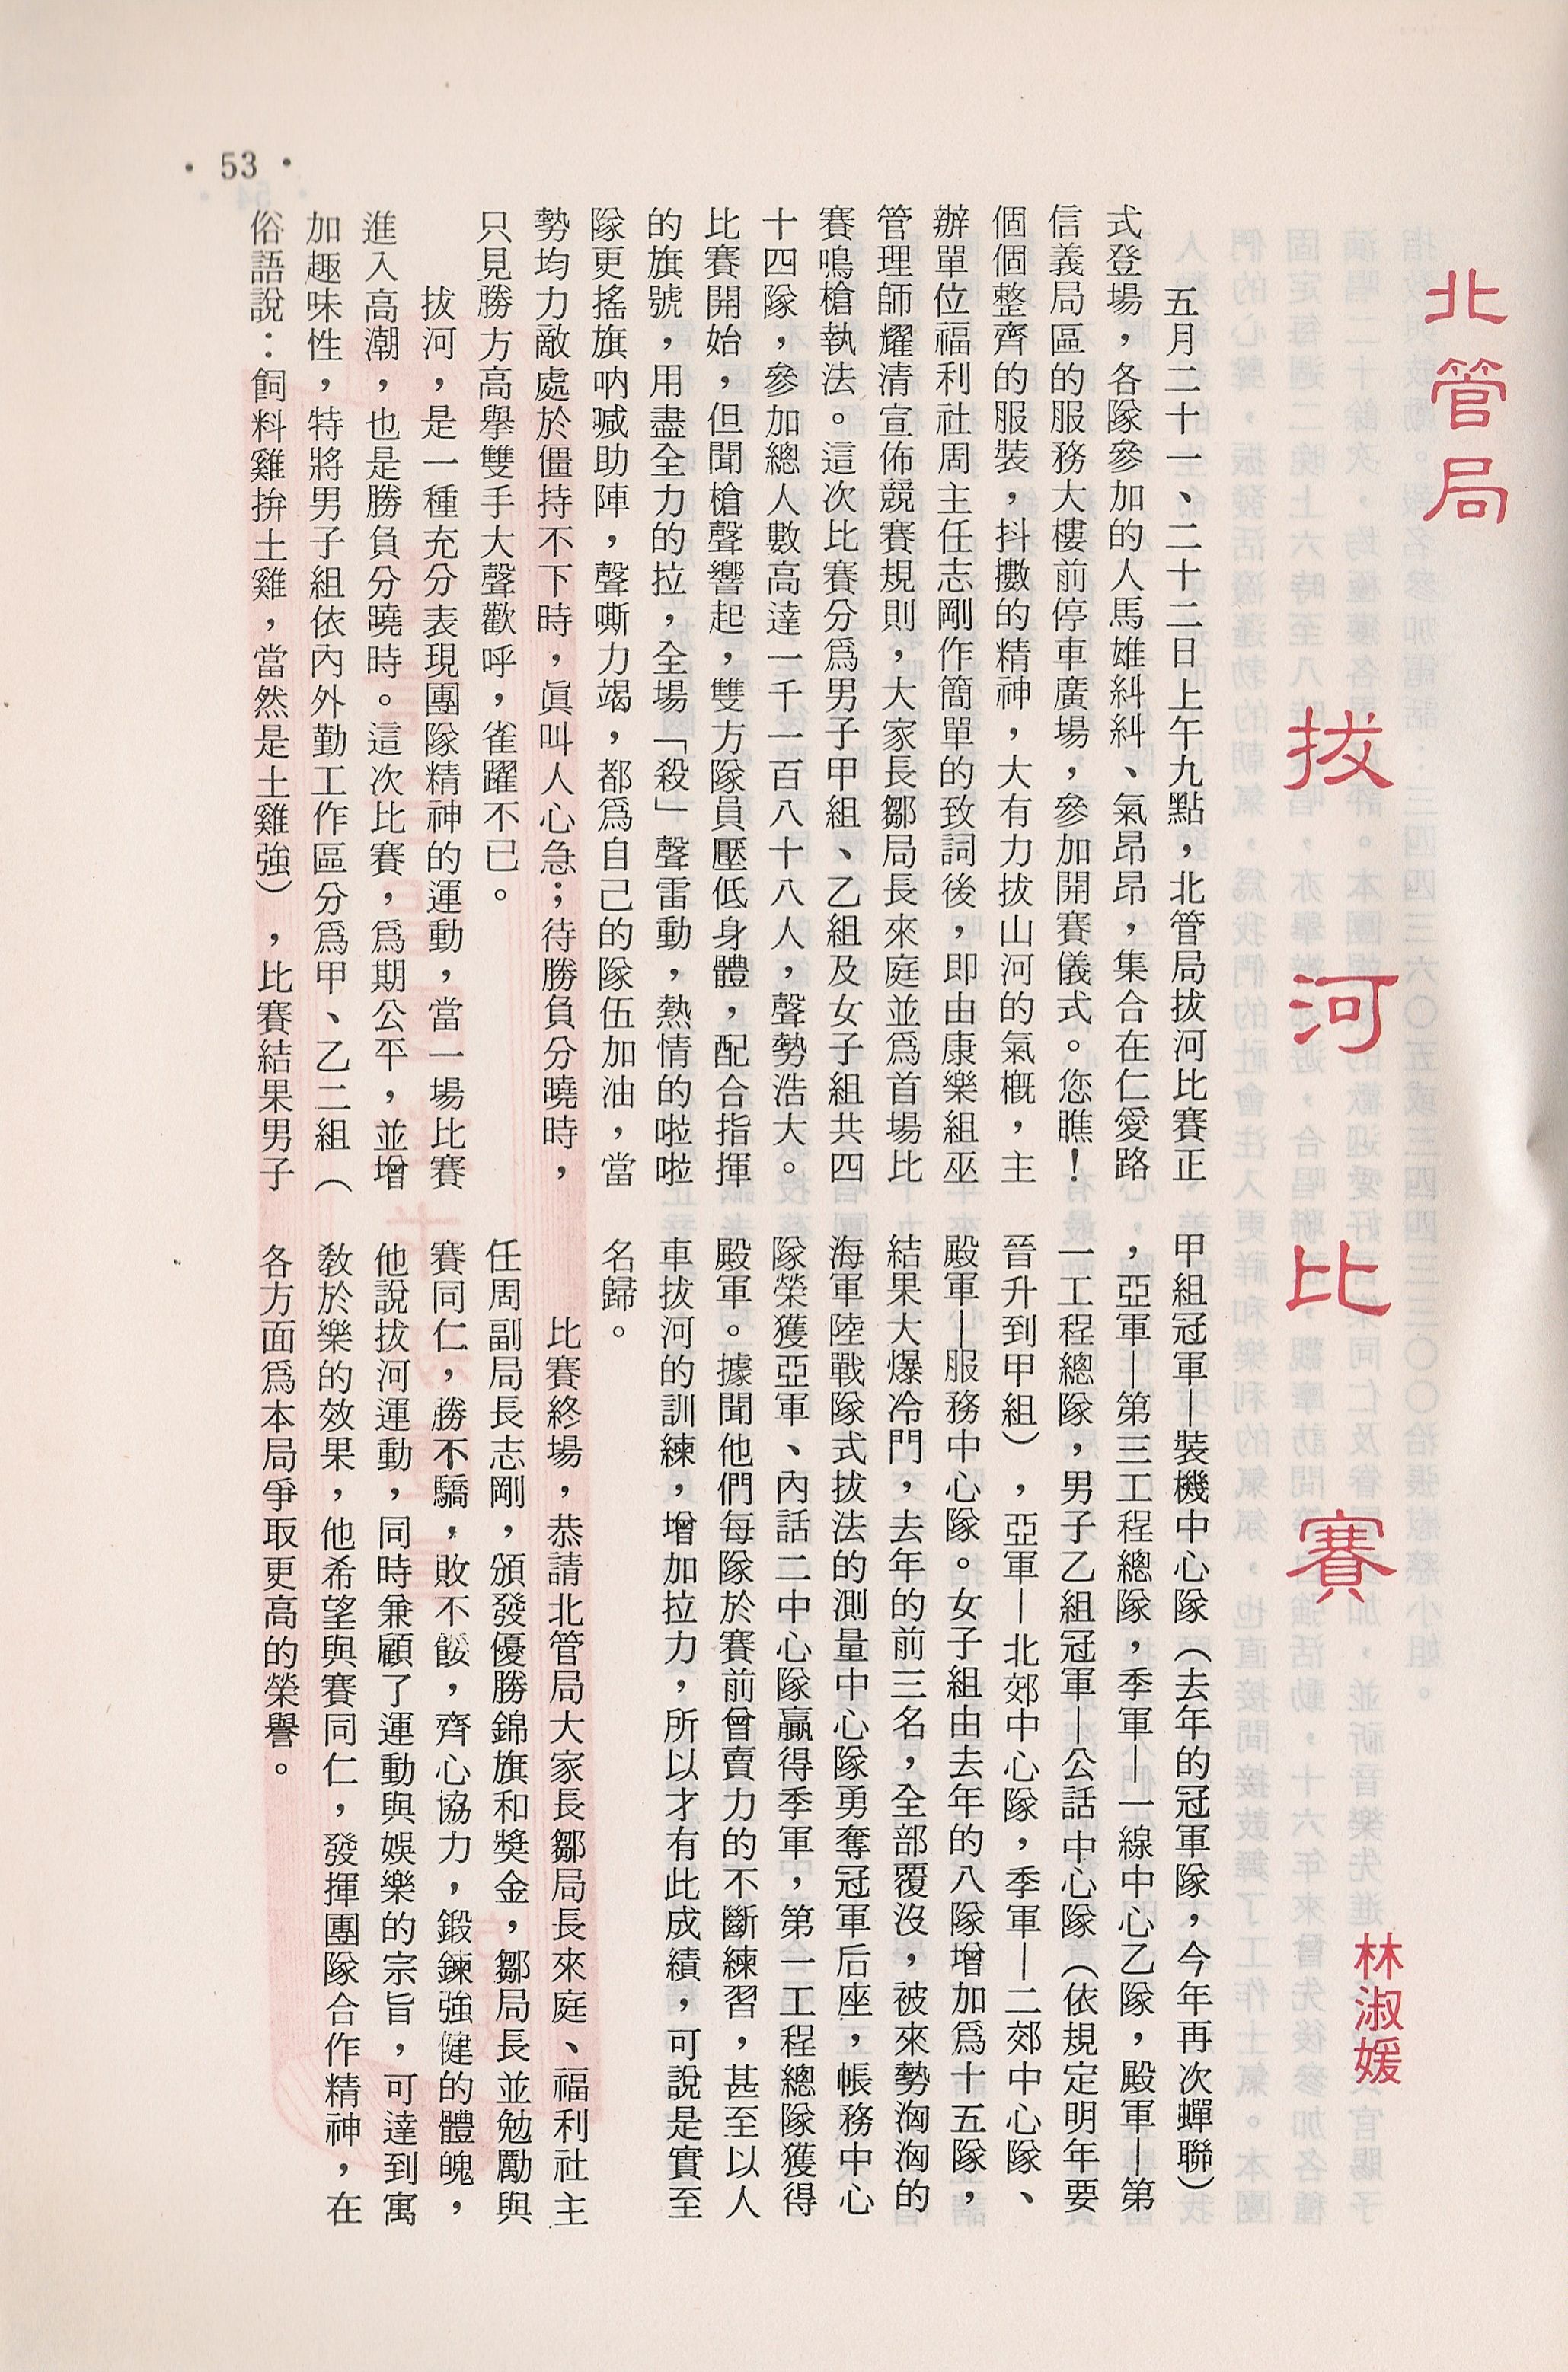 北管局
拔河比賽
林淑媛
五月二十一、二十二日上午九點，北管局拔河比賽正
式登場，各隊參加的人馬雄糾糾、氣昂昂，集合在仁愛路
信義局區的服務大樓前停車廣場，參加開賽儀式。您瞧！
個個整齊的服裝，抖擻的精神，大有力拔山河的氣概，主
辦單位福利社周主任志剛作簡單的致詞後，即由康樂組巫
管理師耀清宣佈競賽規則，大家長鄒局長來庭並爲首場比
賽鳴槍執法。這次比賽分爲男子甲組、乙組及女子組共四
十四隊，參加總人數高達一千一百八十八人，聲勢浩大。
比賽開始，但聞槍聲響起，雙方隊員壓低身體，配合指揮
的旗號，用盡全力的拉，全場「殺」聲雷動，熱情的啦啦
隊更搖旗吶喊助陣，聲嘶力竭，都爲自己的隊伍加油，當
勢均力敵處於僵持不下時，眞叫人心急；待勝負分曉時，
只見勝方高舉雙手大聲歡呼，雀躍不已。
拔河，是一種充分表現團隊精神的運動，當一場比賽
進入高潮，也是勝負分曉時。這次比賽，爲期公平，並增
加趣味性，特將男子組依內外勤工作區分爲甲、乙二組（
俗語說：飼料雞拚土雞，當然是土雞強），比賽結果男子
甲組冠軍—裝機中心隊（去年的冠軍隊，今年再次蟬聯）
，亞軍—第三工程總隊，季軍—一線中心乙隊，殿軍—第
一工程總隊，男子乙組冠軍—公話中心隊（依規定明年要
晉升到甲組），亞軍—北郊中心隊，季軍—二郊中心隊、
殿軍—服務中心隊。女子組由去年的八隊增加爲十五隊，
結果大爆冷門，去年的前三名，全部覆沒，被來勢洶洶的
海軍陸戰隊式拔法的測量中心隊勇奪冠軍后座，帳務中心
隊榮獲亞軍、內話二中心隊贏得季軍，第一工程總隊獲得
殿軍。據聞他們每隊於賽前曾賣力的不斷練習，甚至以人
車拔河的訓練，增加拉力，所以才有此成績，可說是實至
名歸。
比賽終場，恭請北管局大家長鄒局長來庭、福利社主
任周副局長志剛，頒發優勝錦旗和獎金，鄒局長並勉勵與
賽同仁，勝不驕，敗不餒，齊心協力，鍛鍊強健的體魄，
他說拔河運動，同時兼顧了運動與娛樂的宗旨，可達到寓
敎於樂的效果，他希望與賽同仁，發揮團隊合作精神，在
各方面爲本局爭取更高的榮譽。
• 53 •